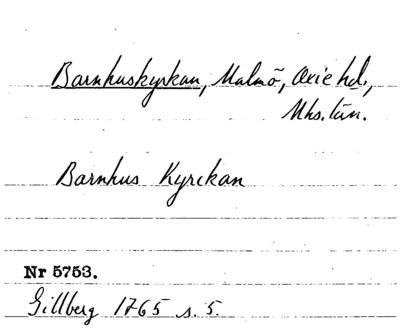 Barnhuskyrkan, Malmö, Oxie hd.,
Mhs. län.
Barnhus Kyrckan
Nr 5753.
Gillberg 1765 s. 5.